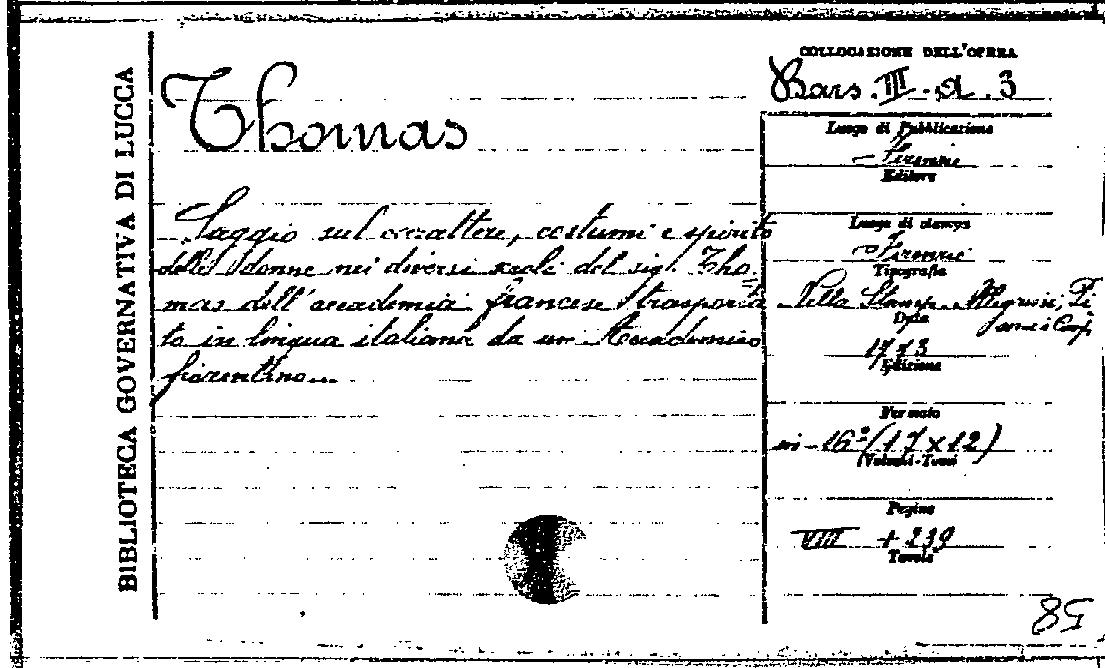 BIBLIOTECA GOVERNATIVA DI LUCCA
Thomas
Saggio sul carattere, costumi e spirito
delle donne nei diversi secoli del sig. Tho=
mas dell'accademia francese trasporta
to in lingua italiana da un Accademico
fiorentino
COLLOCAZIONE DELL'OPERA
Bars. III. a. 3
Luogo di Pubblicazione
Firenze
Editore
Luogo di stampa
Firenze
Tipografia
Nella Stamp. Allegrini,
Data
1773
Edizione
Formato
in-16º (17 x 12)
Volumi-Tomi
Pagine
VIII + 239
Tavole
85